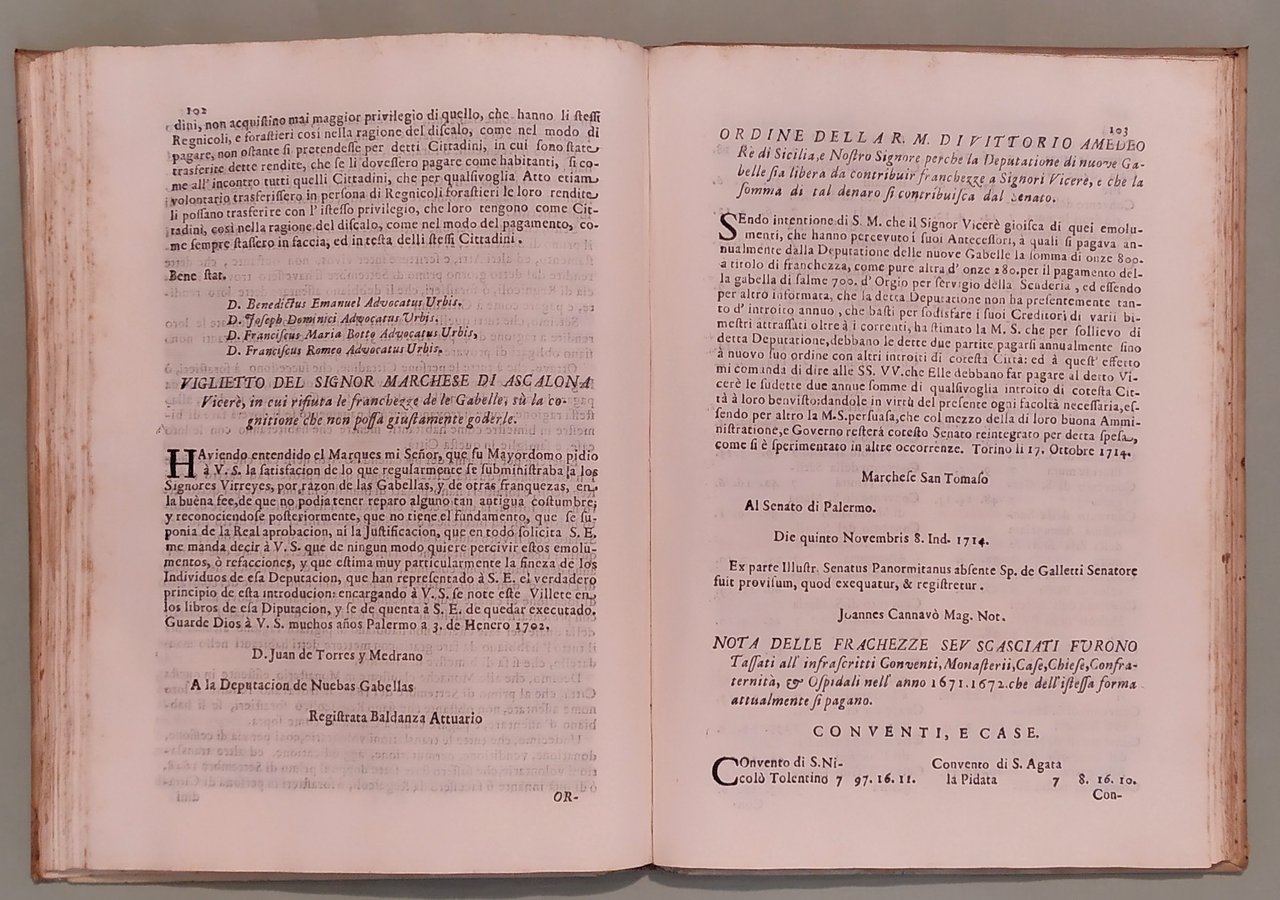 102
dini, non acquiſtino mai maggior privilegio di quello, che hanno li ſteſſi
Regnicoli, e foraſtieri così nella ragione del diſcalo, come nel modo di
pagare, non oſtante ſi pretendeſſe per detti Cittadini, in cui ſono ſtate
trasferite dette rendite, che ſe li doveſſero pagare come habitanti, ſi co-
me all' incontro tutti quelli Cittadini, che per qualſivoglia Atto etiam
volontario trasferiſſero in perſona di Regnicoli foraſtieri le loro rendite
li poſſano trasferire con l' iſteſſo privilegio, che loro tengono come Cit-
tadini, così nella ragione del diſcalo, come nel modo del pagamento, co-
me ſempre ſtaſſero in faccia, ed in teſta delli ſteſſi Cittadini.
Bene ſtat.
D. Benedictus Emanuel Advocatus Urbis.
D. Joſeph Dominici Advocatus Urbis.
D. Franciſcus Maria Botto Advocatus Urbis,
D. Franciſcus Romeo Advocatus Urbis.
VIGLIETTO DEL SIGNOR MARCHESE DI ASCALONA
Vicerè, in cui rifiuta le franchezze de le Gabelle, sù la co-
gnitione che non poſſa giuſtamente goderle.
HAviendo entendido el Marques mi Señor, que ſu Mayordomo pidio
à V. S. la ſatisfacion de lo que regularmente ſe ſubminiſtraba a los
Signores Virreyes, por razon de las Gabellas, y de otras franquezas, en
la buena fee, de que no podia tener reparo alguno tan antigua coſtumbre;
y reconociendoſe poſteriormente, que no tiene el fundamento, que ſe ſu-
ponia de la Real aprobacion, ni la Juſtificacion, que en todo ſolicita S. E.
me manda decir à V. S. que de ningun modo quiere percivir eſtos emolu-
mentos, ò refacciones, y que eſtima muy particularmente la fineza de los
Individuos de eſa Deputacion, que han repreſentado à S. E. el verdadero
principio de eſta introducion: encargando à V. S. ſe note eſte Villete en
los libros de eſa Diputacion, y ſe de quenta à S. E. de quedar executado.
Guarde Dios à V. S. muchos años Palermo a 3. de Henero 1702.
D. Juan de Torres y Medrano
A la Deputacion de Nuebas Gabellas
Regiſtrata Baldanza Attuario
OR-
103
ORDINE DELLA R. M. DI VITTORIO AMEDEO
Re di Sicilia, e Noſtro Signore perche la Deputatione di nuove Ga-
belle ſia libera da contribuir franchezze a Signori Vicerè, e che la
ſomma di tal denaro ſi contribuiſca dal Senato.
SEndo intentione di S. M. che il Signor Vicerè gioiſca di quei emolu-
menti, che hanno percevuto i ſuoi Anteceſſori, à quali ſi pagava an-
nualmente dalla Deputatione delle nuove Gabelle la ſomma di onze 800.
a titolo di franchezza, come pure altra d' onze 280. per il pagamento del-
la gabella di ſalme 700. d' Orgio per ſervigio della Scuderia, ed eſſendo
per altro informata, che la detta Deputatione non ha preſentemente tan-
to d' introito annuo, che baſti per ſodisfare i ſuoi Creditori di varii bi-
meſtri attraſſati oltre à i correnti, ha ſtimato la M. S. che per ſollievo di
detta Deputatione, debbano le dette due partite pagarſi annualmente ſino
à nuovo ſuo ordine con altri introiti di coteſta Città: ed à queſt' effetto
mi comanda di dire alle SS. VV. che Elle debbano far pagare al detto Vi-
cerè le ſudette due annue ſomme di qualſivoglia introito di coteſta Cit-
tà à loro benviſto: dandole in virtù del preſente ogni facoltà neceſſaria, eſ-
ſendo per altro la M. S. perſuaſa, che col mezzo della di loro buona Ammi-
niſtratione, e Governo reſterà coteſto Senato reintegrato per detta ſpeſa,
come ſi è ſperimentato in altre occorrenze. Torino li 17. Ottobre 1714.
Marcheſe San Tomaſo
Al Senato di Palermo.
Die quinto Novembris 8. Ind. 1714.
Ex parte Illuſtr. Senatus Panormitanus abſente Sp. de Galletti Senatore
fuit proviſum, quod exequatur, & regiſtretur.
Joannes Cannavò Mag. Not.
NOTA DELLE FRACHEZZE SEV SCASCIATI FVRONO
Taſſati all' infraſcritti Conventi, Monaſterii, Caſe, Chieſe, Confra-
ternità, & Oſpidali nell' anno 1671. 1672. che dell' iſteſſa forma
attualmente ſi pagano.
CONVENTI, E CASE.
COnvento di S. Ni-
colò Tolentino 7 97. 16. 11.
Convento di S. Agata
la Pidata 7 8. 16. 10.
Con-